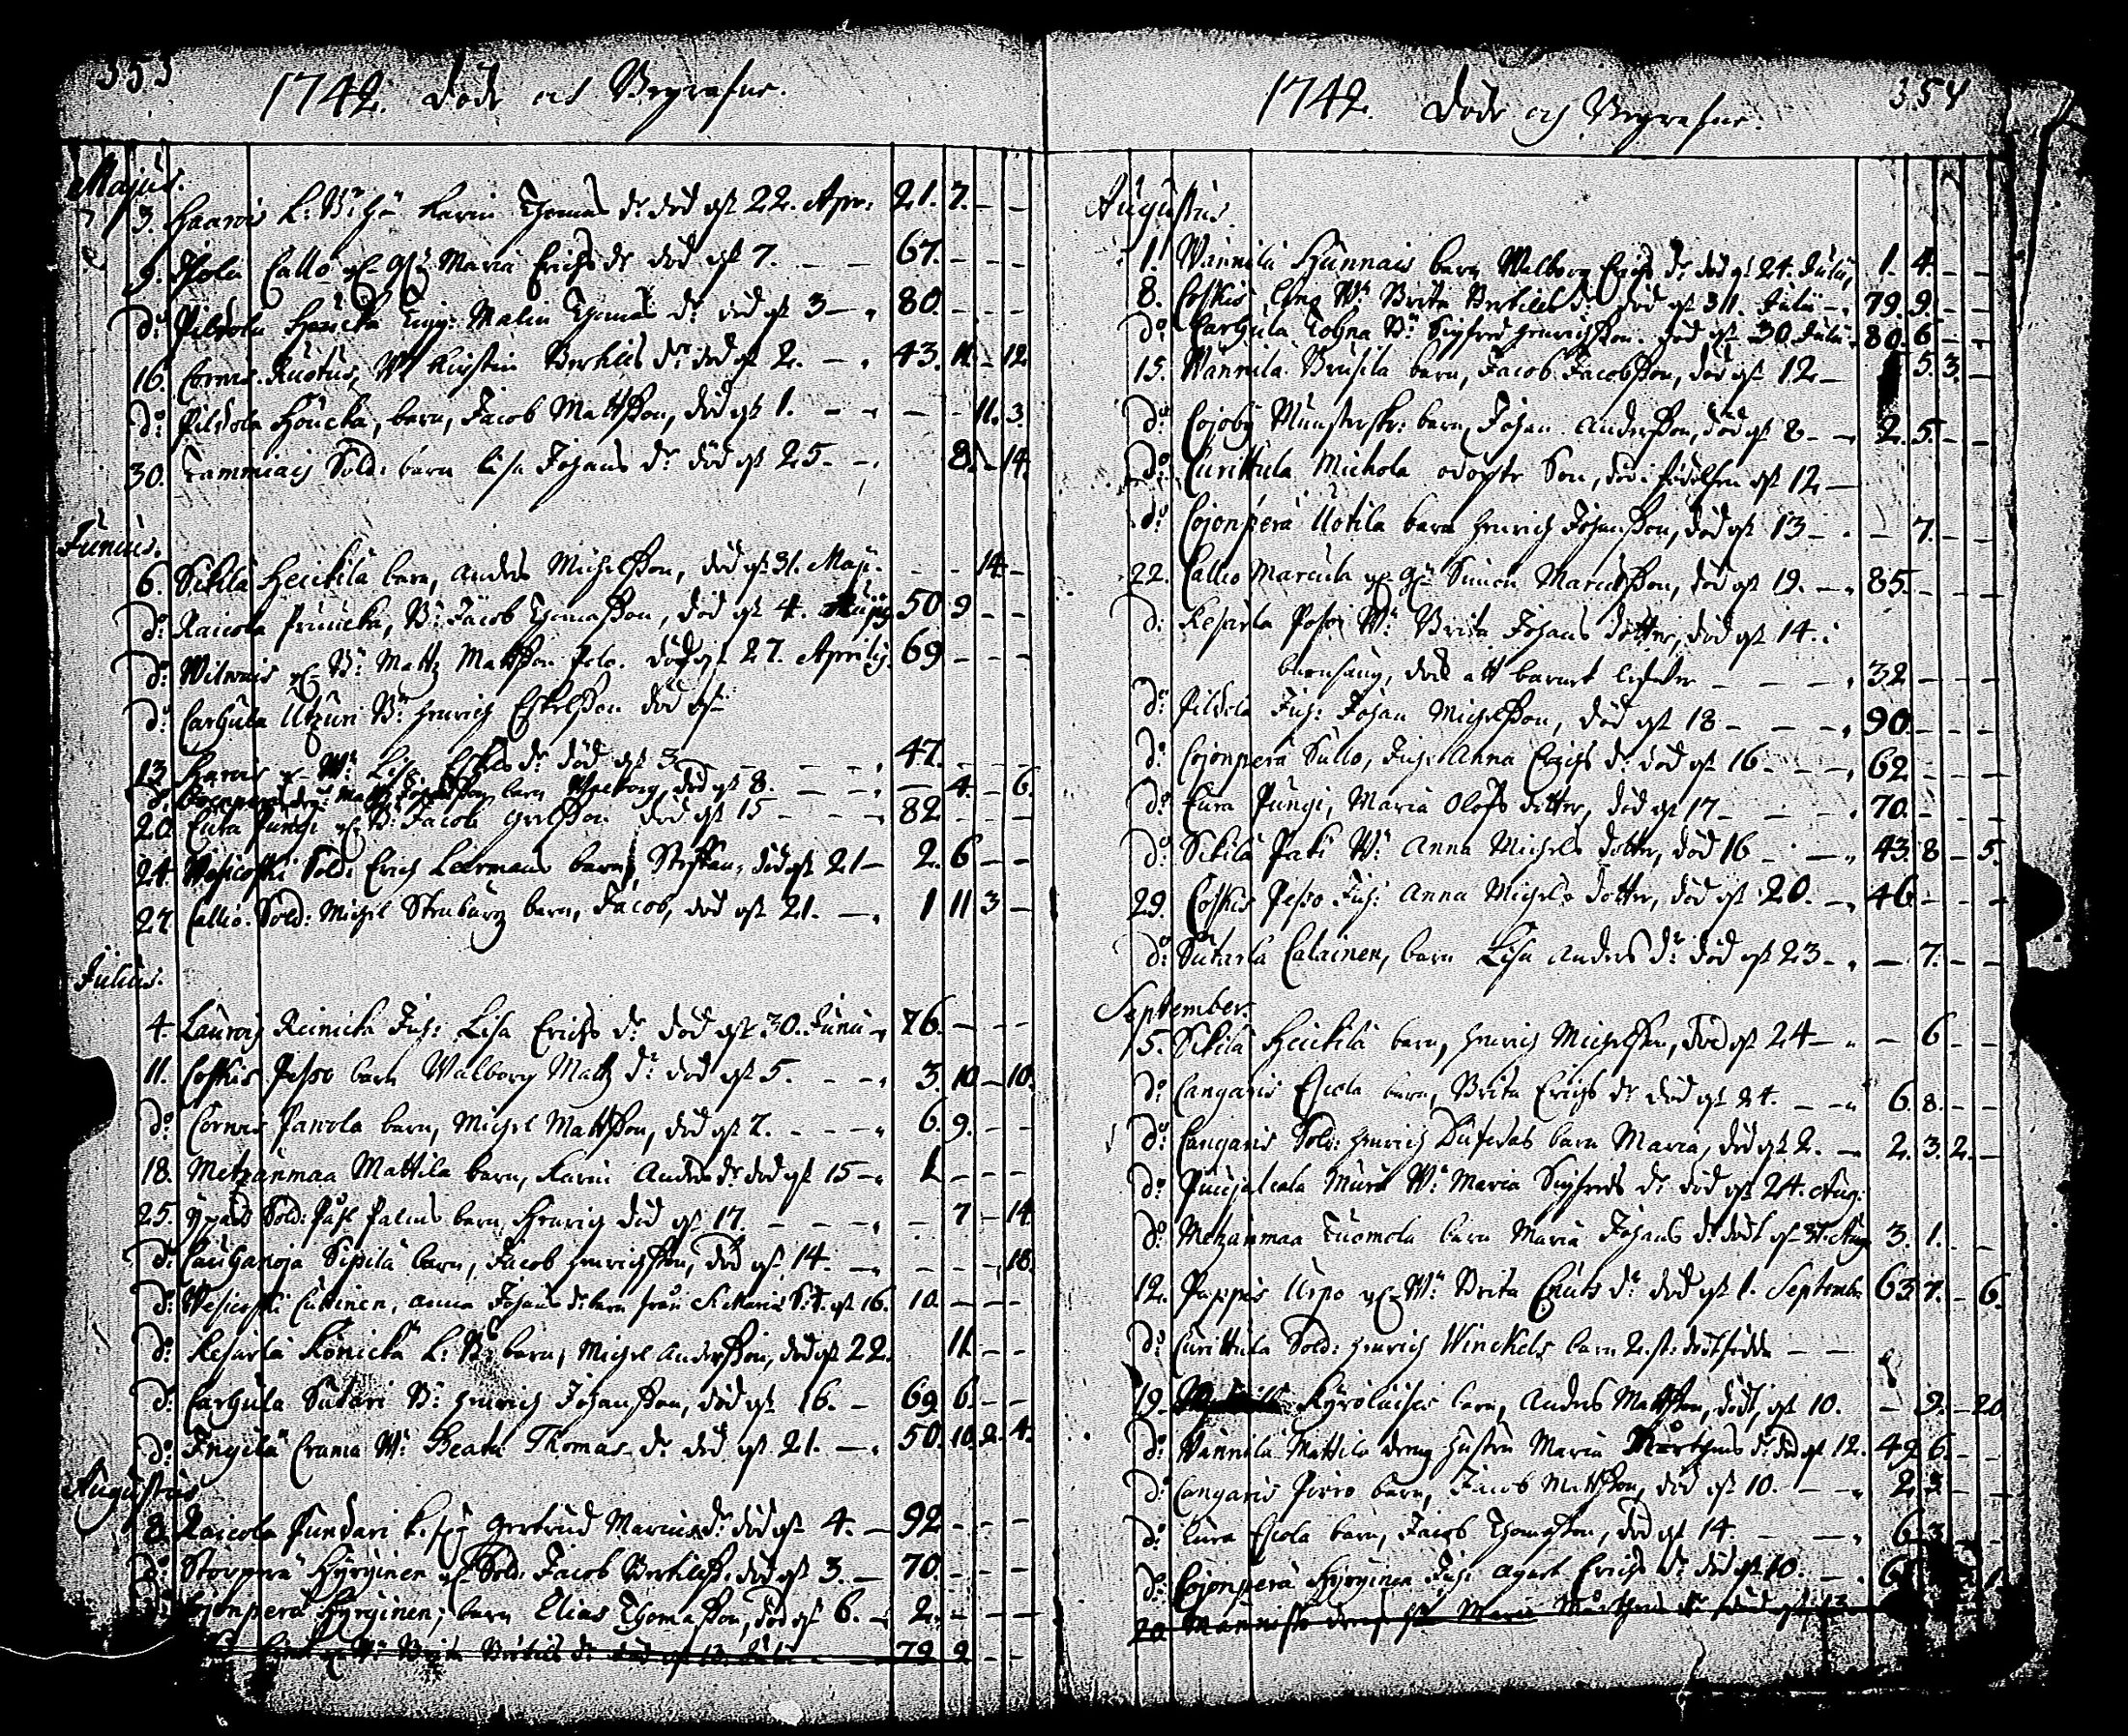 353
1742. Döde och Begrafne.
Majus.
3. Haarois L: Bd: Hu Karin Thomas dr död dst 22. Apr: 21. 7. - -
9. Callo Maria Erichs dr död dst 7. - - 67. - - -
do: Pildola Heucka Malin Thomas dr död dst 3 - 80. - - -
16. Corvois. Kustus, Wa Kirstin Bertils dr död dst 2. - 43. 11. - 12
do: Pildola Höucka, barn, Jacob Mattsson, död dst 1. - - - 11. 3
30. Tammiais Sold: barn Lisa Johans dr död dst 25. - 8. - 14.
Junius.
6. Sikilä Heickilä barn, Anders Michelsson, död dst 31. Maji. - - 14 -
do: Raicola Prunicka, Bd: Jacob Thomasson, död dst 4. 50 9 - -
do: Bd: Mattz Mattsson död dst 27. Aprilis. 69 - - -
do: Carhula Utzuri Bd: Henrich Eskelsson död dst
13 Harois Wa: Lisa Eskels dr död dst 3 - - - 47. - - -
do: Mattz barn Walborg, död dst 8. - - - 4. - 6.
20 Eura Pungi Bd: Jacob död dst 15 - - - 82 - - -
24. Wesicoski Sold: Erich Leermans barn, Steffan, död dst 21 - 2. 6 - -
27. Callio. Sold: Michel Straburg barn, Jacob, död dst 21. - 1 11 3 -
Julius.
4. Laurois Reinicka Inh: Lisa Erichs dr död dst 30. Junii - 76. - - -
11. Coskis Pesso barn Walborg Mattz dr död dst 5. - - 3. 10 - 10.
do: Corvois Panola barn, Michel Mattsson, död dst 2. - - - 6. 9. - -
18. Metzänmaa Mattila barn, Karin Anders dr död dst 15 - 1 - - -
25. Sold: Påhl Palms barn, Henrich död dst 17. - - - - 7 - 14
do: Cauhanoja Sipilä barn, Jacob Henrichsson, död dst 14. - - - - 18.
do: Wesicoski Cuttinen, Anna Johans dr barn från dst 16. 10. - - -
do: Kesärlä Könickä L: Bd: barn, Michel Andersson, död dst 22. 11. - -
do: Carhula Sutari Bd: Henrich Johansson, död dst 16. - 69 6. - -
do: Ingilä Crama Wa: Beata Thomas dr död dst 21. - 50. 10. 2. 4.
Augustus
8. Raicola Pundari Gertrud Marcus dr död dst 4. - 92 - - -
do: Störperä Hyrginen Sold: Jacob Bertilss. död dst 3. - 70. - - -
Cojonperä Hyrginen, barn Elias Thomasson, död dst 6. - 2. - - -
Wa Brita Bertils dr död dst 79 9 - -
1742. Döde och Begrafne.
354
Augustus
1. Wännilä Hunnais barn Walborg Erichs dr död dst 24. Julii, 1. 4. - -
8. Coskis Wa: Brita Bertils dr död dst 311. Julii - 79. 9. - -
do: Carhula Bd: Sigfred Henrichsson. död dst 30. Julii - 80. 6 - -
15. Wännilä. Brusila barn, Jacob Jacobsson, död dst 12 - 5. 3. -
do: Cojoby barn, Johan Andersson, död dst 8 - 2. 5. - -
do: Curittula Michola odöpte Son, död i födelsen dst 12 -
do: Cojonperä Uotila barn Henrich Johansson, död dst 13 - - 7. - -
22. Callio Marcula Simon Marcusson, död dst 19. - 85. - - -
do: Kesärlä Posoi Wa: Brita Johans dotter, död dst 14. i
barnsäng, doch att barnet lefwer - - - 32 - - -
do: Pildola Inh: Johan Michelsson, död dst 18 - - - 90. - - -
do: Cojonperä Sullo, Inh: Anna Erichs dr död dst 16 - - - 62 - - -
do: Eura Pungi, Maria Olofs dotter, död dst 17 - - - 70. - - -
do: Sikilä Paki Wa: Anna Michels dotter, död 16 - - 43. 8 - 5.
29. Coskis Pesso Inh: Anna Michels dotter, död dst 20. - 46 - - -
do: Sutarla Calainen, barn Lisa Anders dr död dst 23 - - 7. - -
September.
5. Sikilä Heickilä barn, Henrich Michelsson, död dst 24 - - 6 - -
do: Cangaris Eskola barn, Brita Erichs dr död dst 24. - - 6. 8. - -
do: Cangaris Sold: Henrich barn Maria, död dst 2. - 2. 3. 2. -
do: Punjalcala Mura Wa: Maria Sigfreds dr död dst 24. Aug:
do: Metzänmaa Tuomola barn Maria Johans dr död dst 31. Aug 3. 1. - -
12. Pappis Urpo Wa: Brita Cnuts dr död dst 1. Septemb: 63 7. - 6.
do: Curittula Sold: Henrich Winckels barn 2. st. dödfödda - -
19. Kyrölaisis barn, Anders Mattsson, död, dst 10. - 9. - 20
do: Wännilä Mattila dreng hustru Maria Mårthens dr död dst 12. 42 6. - -
do: Cangaris Piiro barn, Jacob Mattsson, död dst 10. - - 2 3. - -
do: Eura Eskola barn, Jacob Thomasson, död dst 14. - - 6 3
do: Cojonperä Hyrginen Inh: Agnet Erichs dr död dst 10. - 6
20 Maria Mårthens dr död dst 12